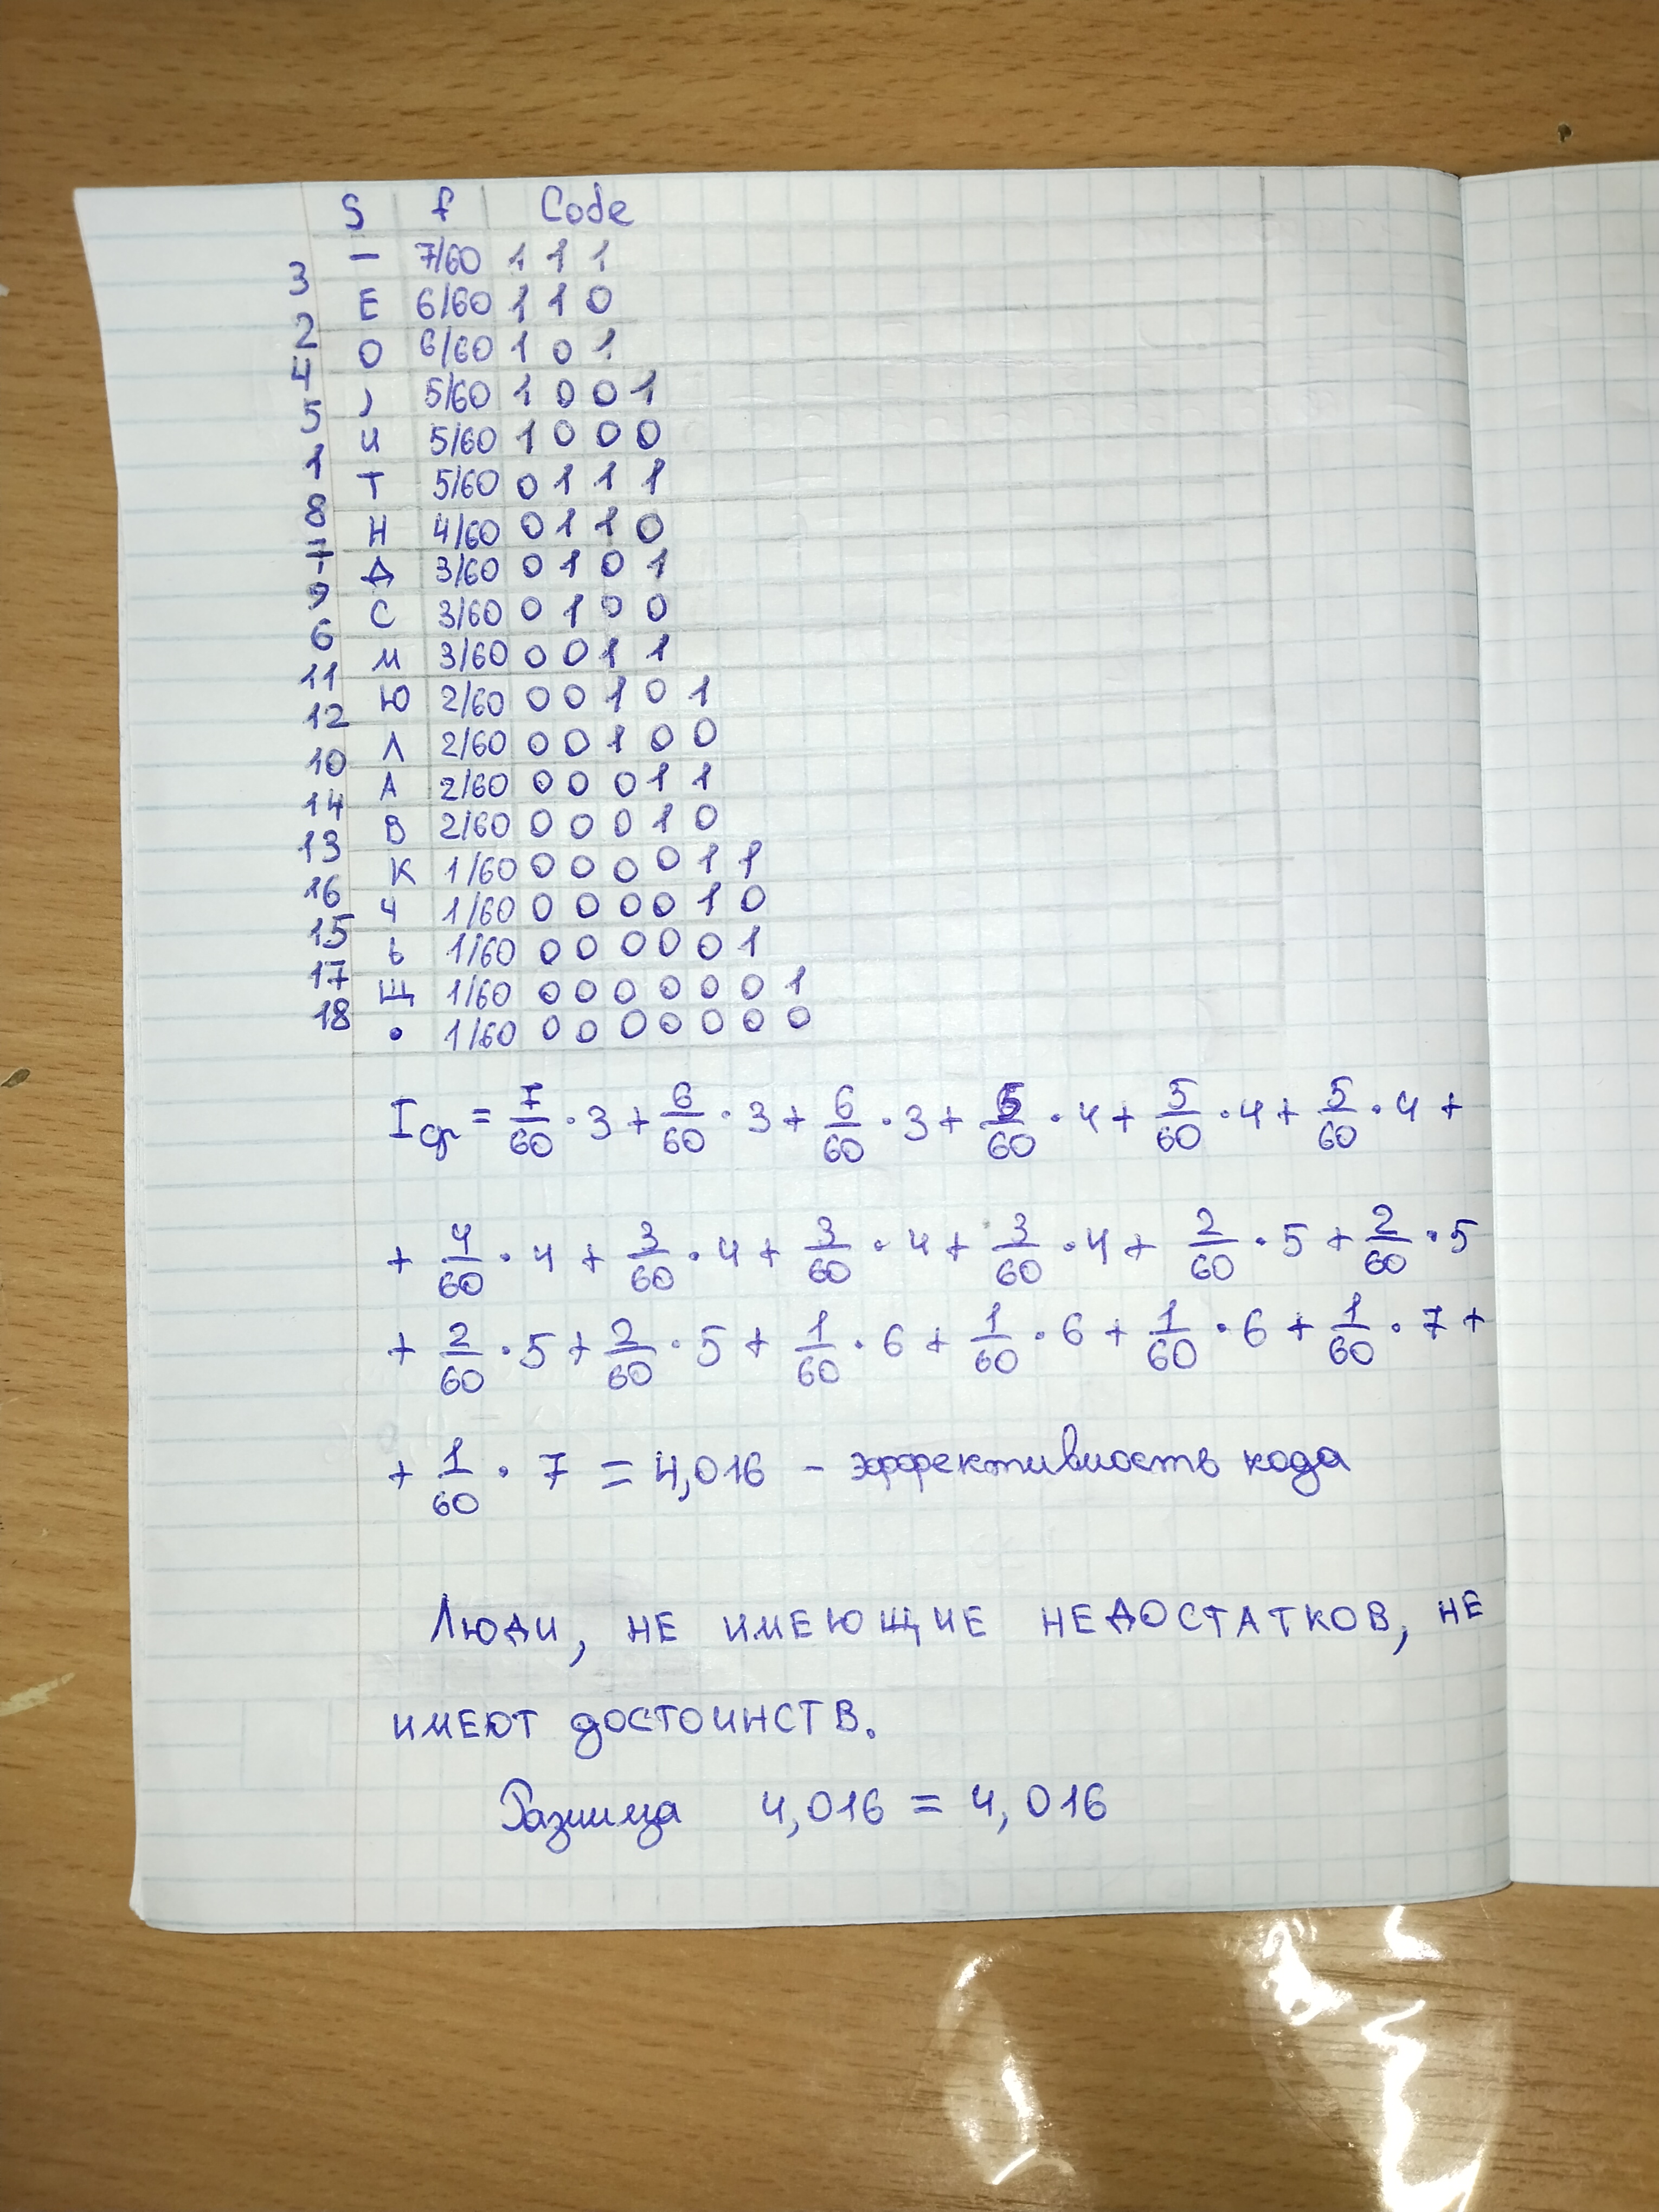 S f Code
— 7/60 1 1 1
3
Е 6/60 1 1 0
2
О 6/60 1 0 1
4
, 5/60 1 0 0 1
5
И 5/60 1 0 0 0
1
Т 5/60 0 1 1 1
8
Н 4/60 0 1 1 0
7
Д 3/60 0 1 0 1
9
С 3/60 0 1 0 0
6
М 3/60 0 0 1 1
11
Ю 2/60 0 0 1 0 1
12
Л 2/60 0 0 1 0 0
10
А 2/60 0 0 0 1 1
14
В 2/60 0 0 0 1 0
13
К 1/60 0 0 0 0 1 1
16
Ч 1/60 0 0 0 0 1 0
15
Ь 1/60 0 0 0 0 0 1
17
Щ 1/60 0 0 0 0 0 0 1
18
. 1/60 0 0 0 0 0 0 0
Iср = 7/60 · 3 + 6/60 · 3 + 6/60 · 3 + 5/60 · 4 + 5/60 · 4 + 5/60 · 4 +
+ 4/60 · 4 + 3/60 · 4 + 3/60 · 4 + 3/60 · 4 + 2/60 · 5 + 2/60 · 5
+ 2/60 · 5 + 2/60 · 5 + 1/60 · 6 + 1/60 · 6 + 1/60 · 6 + 1/60 · 7 +
+ 1/60 · 7 = 4,016 – эффективность кода
Люди, НЕ ИМЕЮЩИЕ НЕДОСТАТКОВ, НЕ
ИМЕЮТ ДОСТОИНСТВ.
Разница 4,016 = 4,016